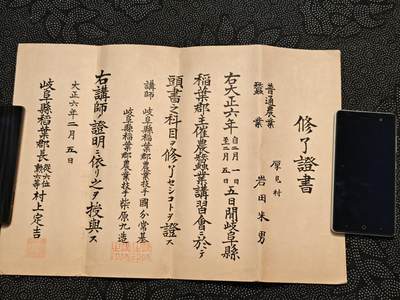 修了證書
普通農業
蠶業
厚見村
岩田米男
右大正六年自二月一日至二月五日五日間岐阜縣
稲葉郡主催農蠶業講習會ニ於テ
頭書之科目ヲ修了セシコトヲ證ス
講師 岐阜縣稲葉郡農業技手 國分常基
岐阜縣稲葉郡農業技手 柴原九造
右講師ノ證明ニ依リ之ヲ授與ス
大正六年二月五日
岐阜縣稲葉郡長從六位勲六等村上定吉